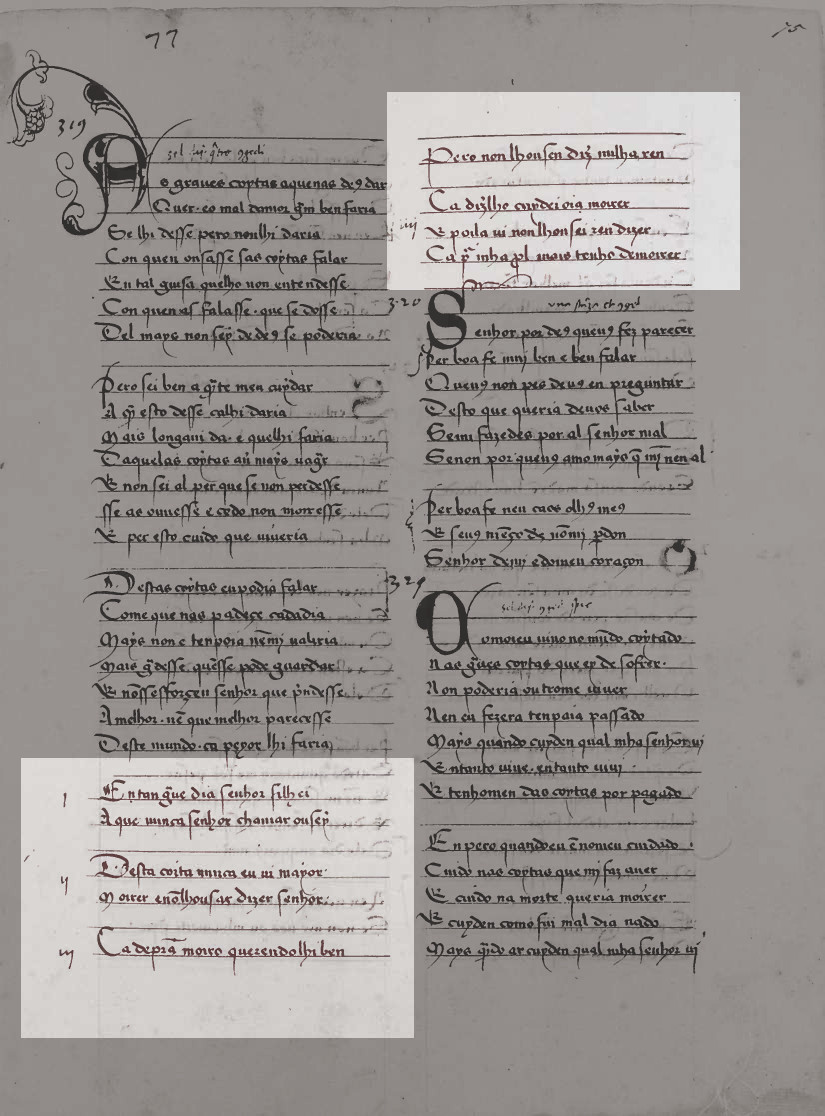 77
75
319
A
o graues coytas aquenas deꝯ dar
Quer. eo mal damor gm̃ ben faria
Se lhi desse pero nonlhi daria
Con quen ousasse sas coytas falar
En tal guisa quelho non entendesse
Con quenas falasse. que se doesse
Del mays non sey de deꝯ se poderia
Pero sei ben a q̃te meu cuydar
A q̃ esto desse calhi daria
Mais longa ui da. e quelhi faria
Daquelas coytas auer mays uagar
E non sei al per que se non perdesse
sse as ouuesse e cedo non moresse
E per esto cuido que uiueria
Destas coytas eu podia falar
Come que nas padeçe cadadia
Mays non e tenpo ia nẽmj ualiria
Mais g̃desse quẽsse pode guardar
E nõ ssesforzeu senhor que p̃ndesse
A melhor. nẽ que melhor pareçesse
Deste mundo. ca peyor lhi faria
j En tan g̃ue dia senhor filhei
A que nunca senhor chamar ousey
ij Desta coita nunca eu ui mayor
Moirer enõ lhousar dizer senhor
iij Ca depr̃a moiro querendolhi ben
Pero non lhousen diz̃ nulha ren
iiij Ca dizlho cuydei oia moirer
E poila ui non lhousei ren dizer
Ca pr̃ inha pl mais tenho de moirer
320
S
enhor por deꝯ quenꝯ fez pareçer
Per boa fe mui ben e ben falar
Quenꝯ non pes deuꝯ en preguntar
Desto que queria deuos saber
Semi fazedes por al senhor mal
Senon por quenꝯ amo mays q̃ mj̃ nen al
Per boa fe neu caos olhꝯ meꝯ
Senhor demj e domeu coraçon
321
O
uomoieu uiuo no mũdo coytado
nas g̃ues coytas que ey de sofrer.
Non poderia outrome uiuer
Nen eu fezera tenpo ia passado
Mays quando cuyden qual mha senhor uj
Entanto uiue. entanto uiuj
E tenhomen das coytas por pagado
En pero quandeu ẽ nomeu cuidado
Cuido nas coytas que mj faz auer
E cuido na morte queria moirer
E cuyden como fui mal dia nado
Mays q̃do ar cuyden qual mha senhor uj